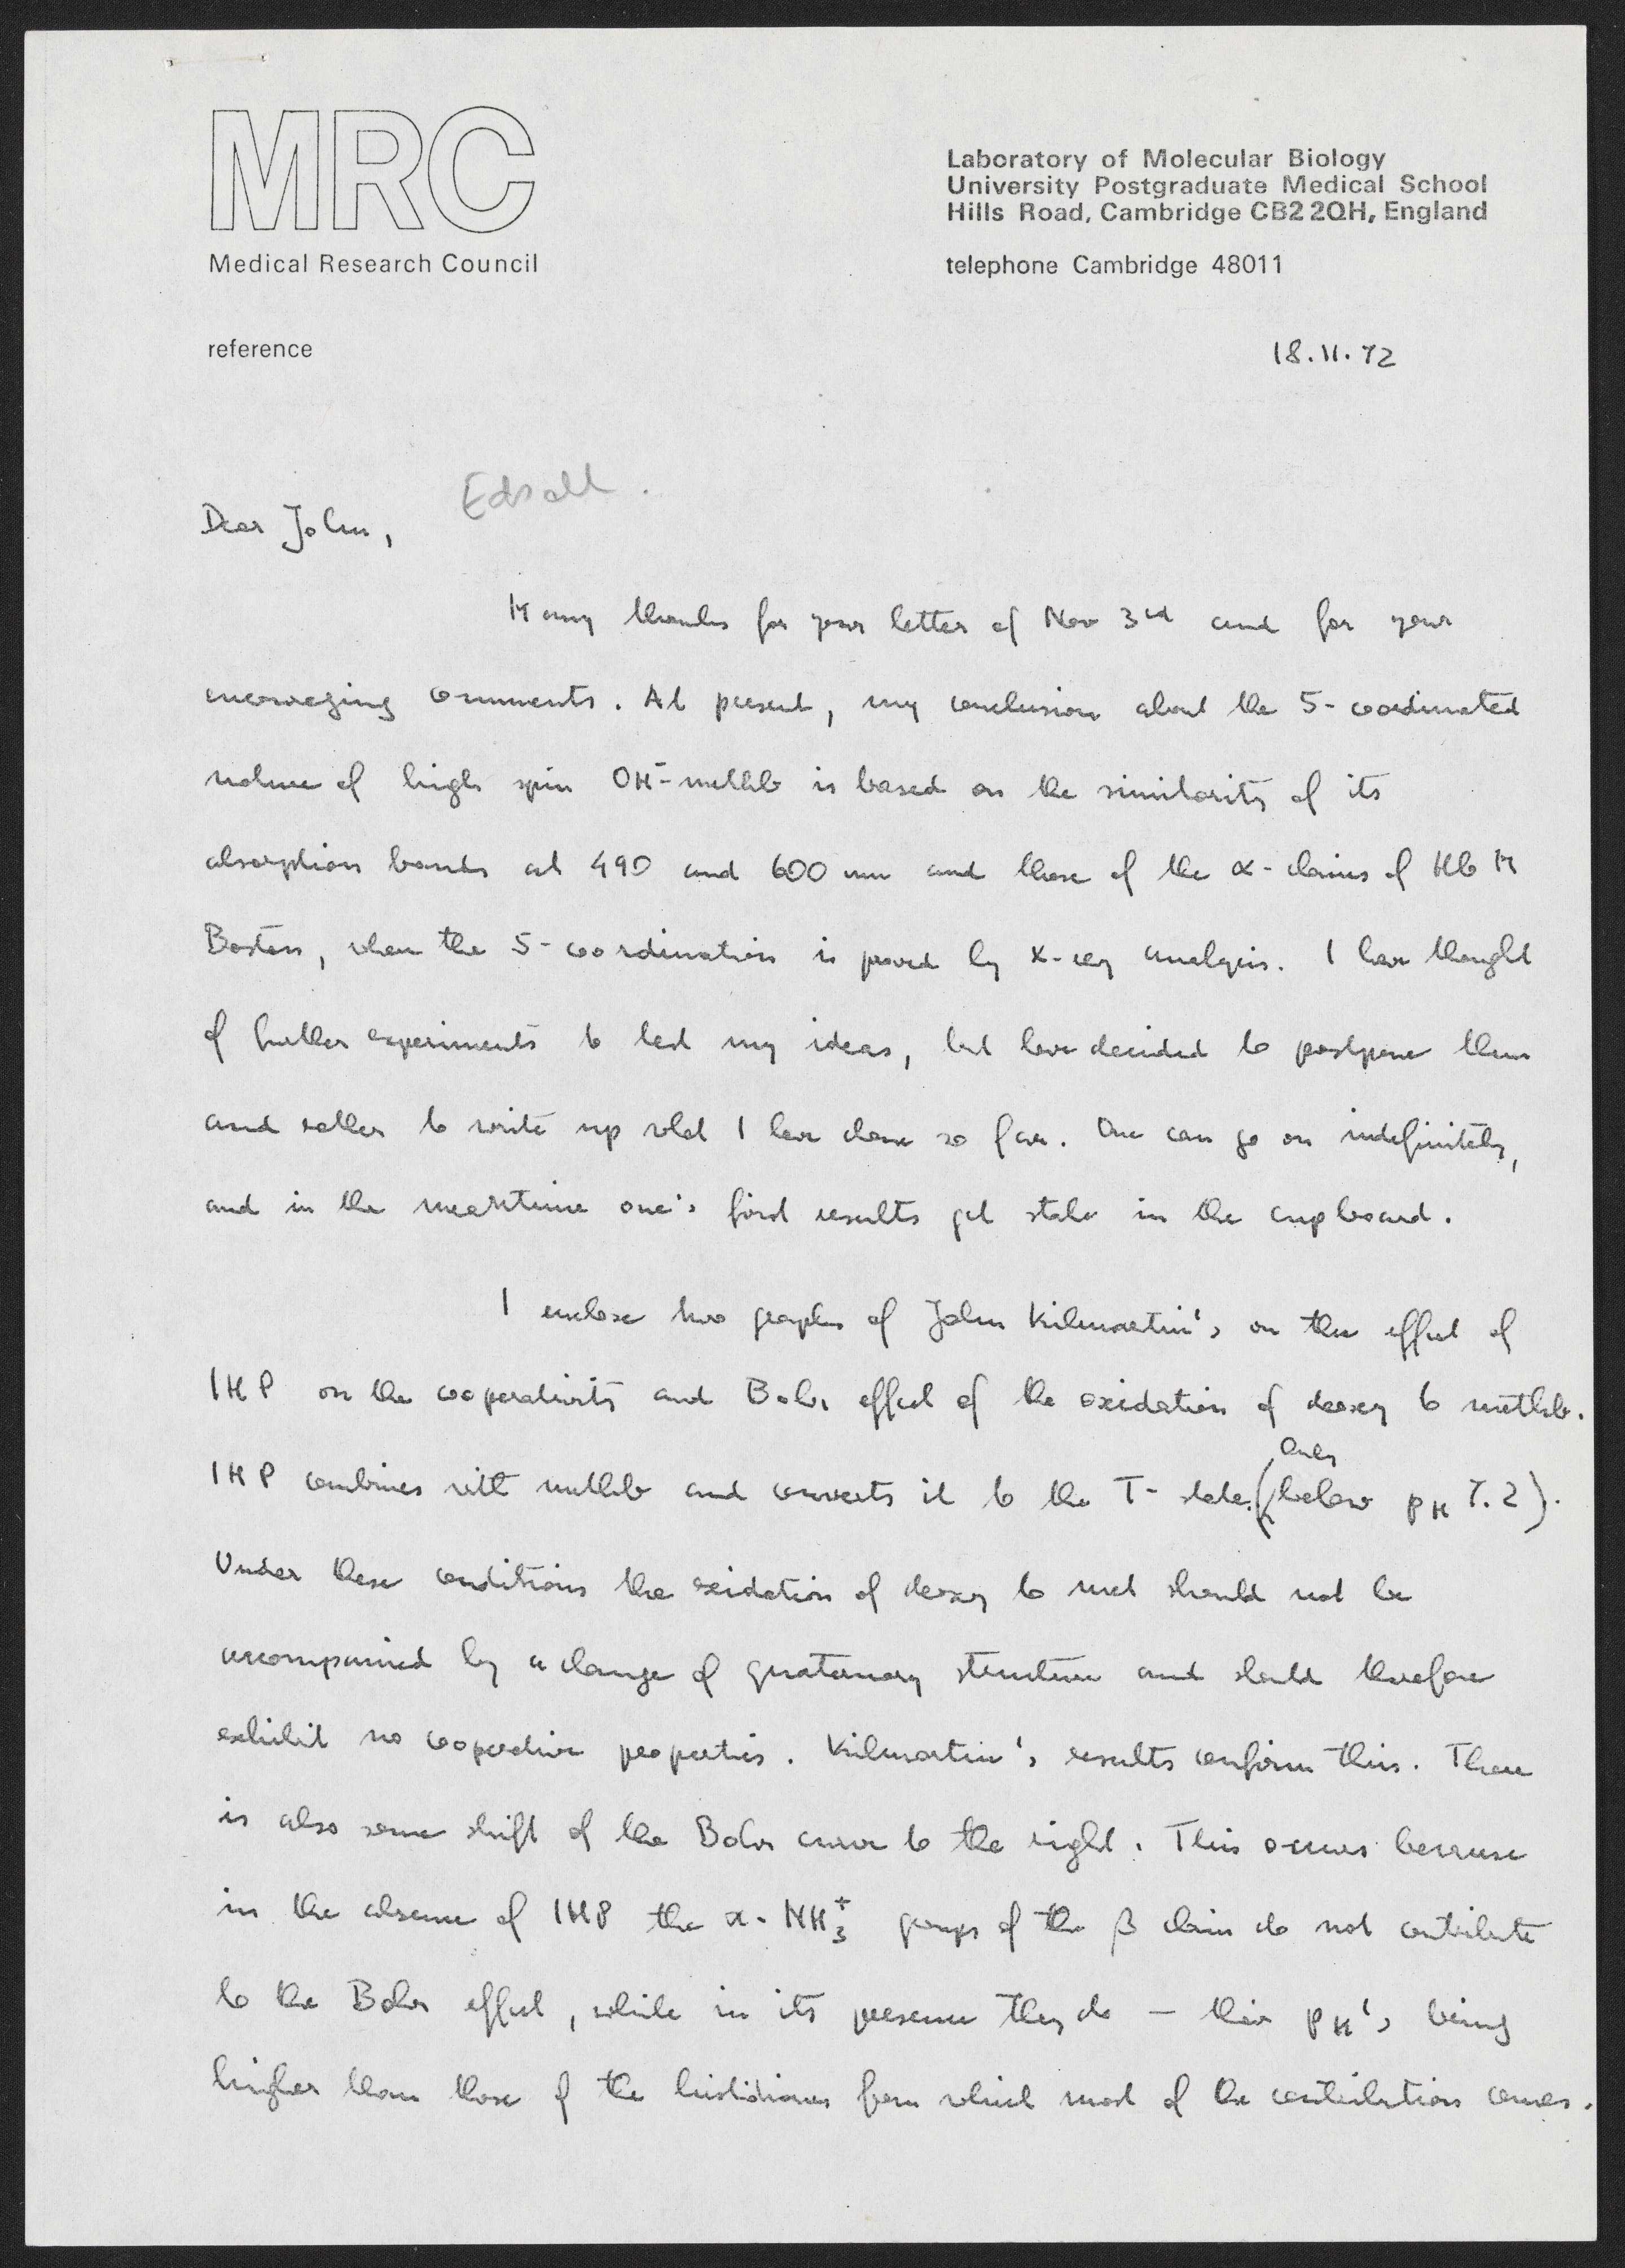 MRC
Medical Research Council
Laboratory of Molecular Biology
University Postgraduate Medical School
Hills Road, Cambridge CB2 2QH, England
telephone Cambridge 48011
reference
18.11.72
Edsall.
Dear John,
Many thanks for your letter of Nov 3rd and for your
encouraging comments. At present, my conclusion about the 5-coordinated
nature of high spin OH⁻-methb is based on the similarity of its
absorption bands at 490 and 600 nm and those of the α-chains of Hb M
Boston, where the 5-coordination is proved by X-ray analysis. I have thought
of further experiments to test my ideas, but have decided to postpone them
and rather to write up what I have done so far. One can go on indefinitely,
and in the meantime one's first results get stale in the cupboard.
I enclose two graphs of John Kilmartin's on the effect of
IHP on the cooperativity and Bohr effect of the oxidation of deoxy to methb.
IHP combines with methb and converts it to the T-state. (only below pH 7.2).
Under these conditions the oxidation of deoxy to met should not be
accompanied by a change of quaternary structure and should therefore
exhibit no cooperative properties. Kilmartin's results confirm this. There
is also some shift of the Bohr curve to the right. This occurs because
in the absence of IHP the α-NH₃⁺ groups of the β chain do not contribute
to the Bohr effect, while in its presence they do — their pK's being
higher than those of the histidines from which most of the contribution comes.